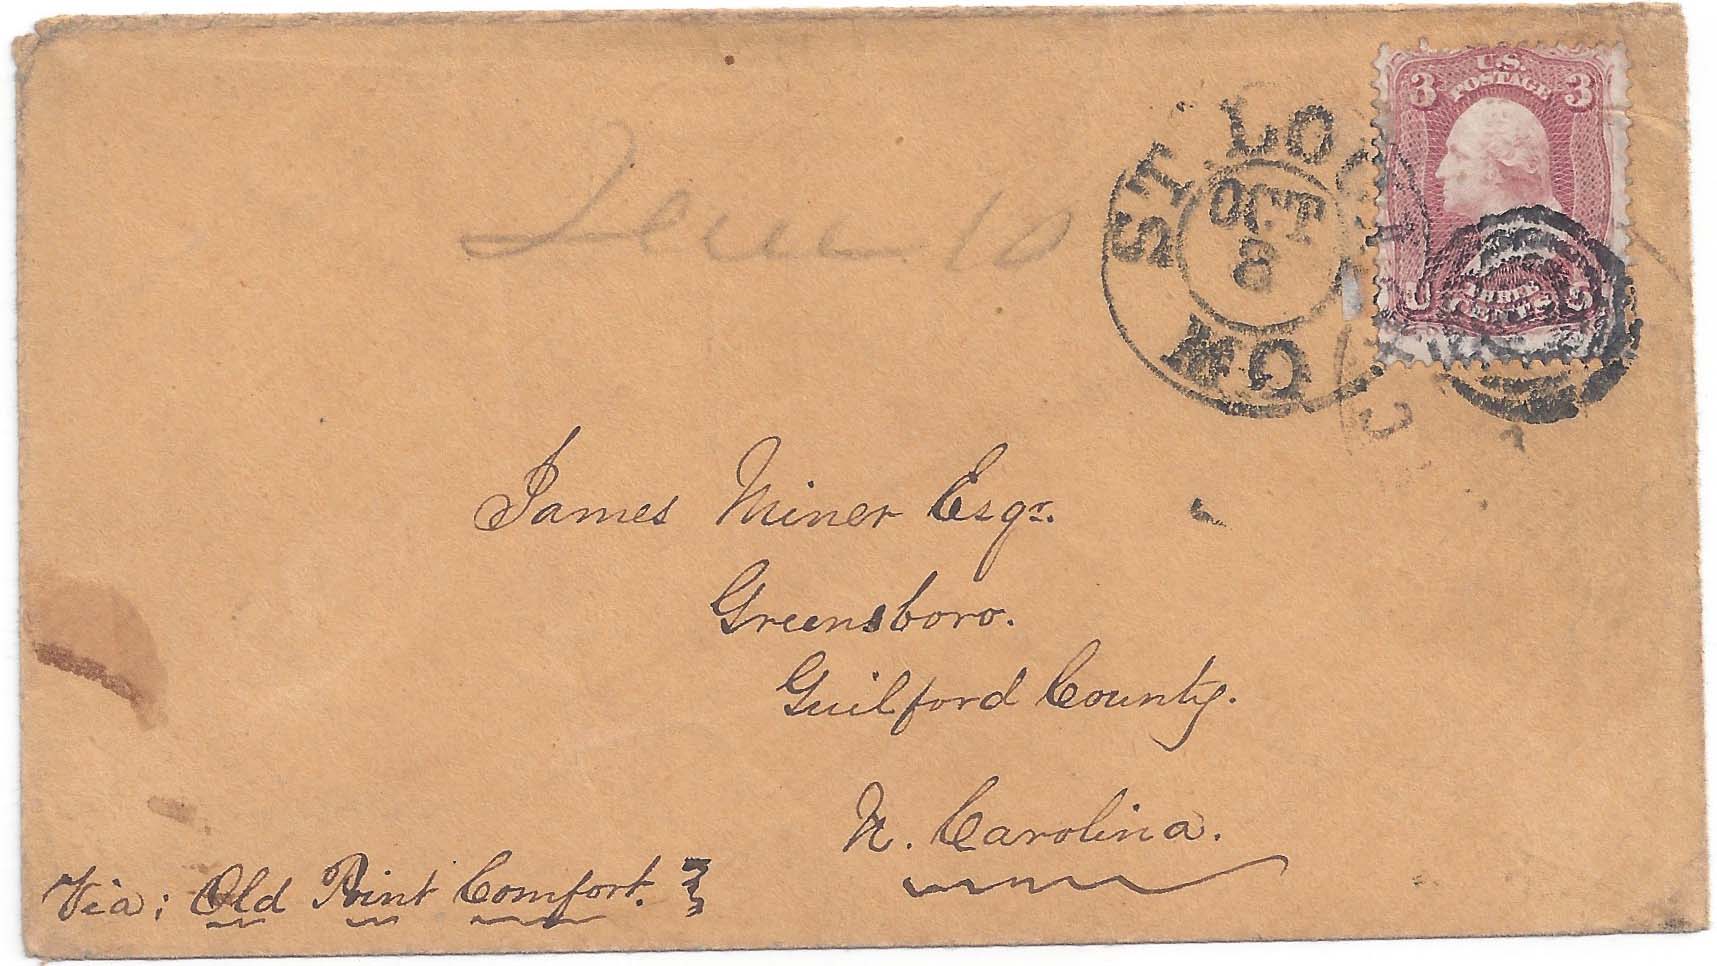 U.S.
POSTAGE
3 3
U THREE S
CENTS
ST. LOUIS
OCT
8
MO
10
James Miner Esqr.
Greensboro.
Guilford County.
N. Carolina.
Via: Old Point Comfort.